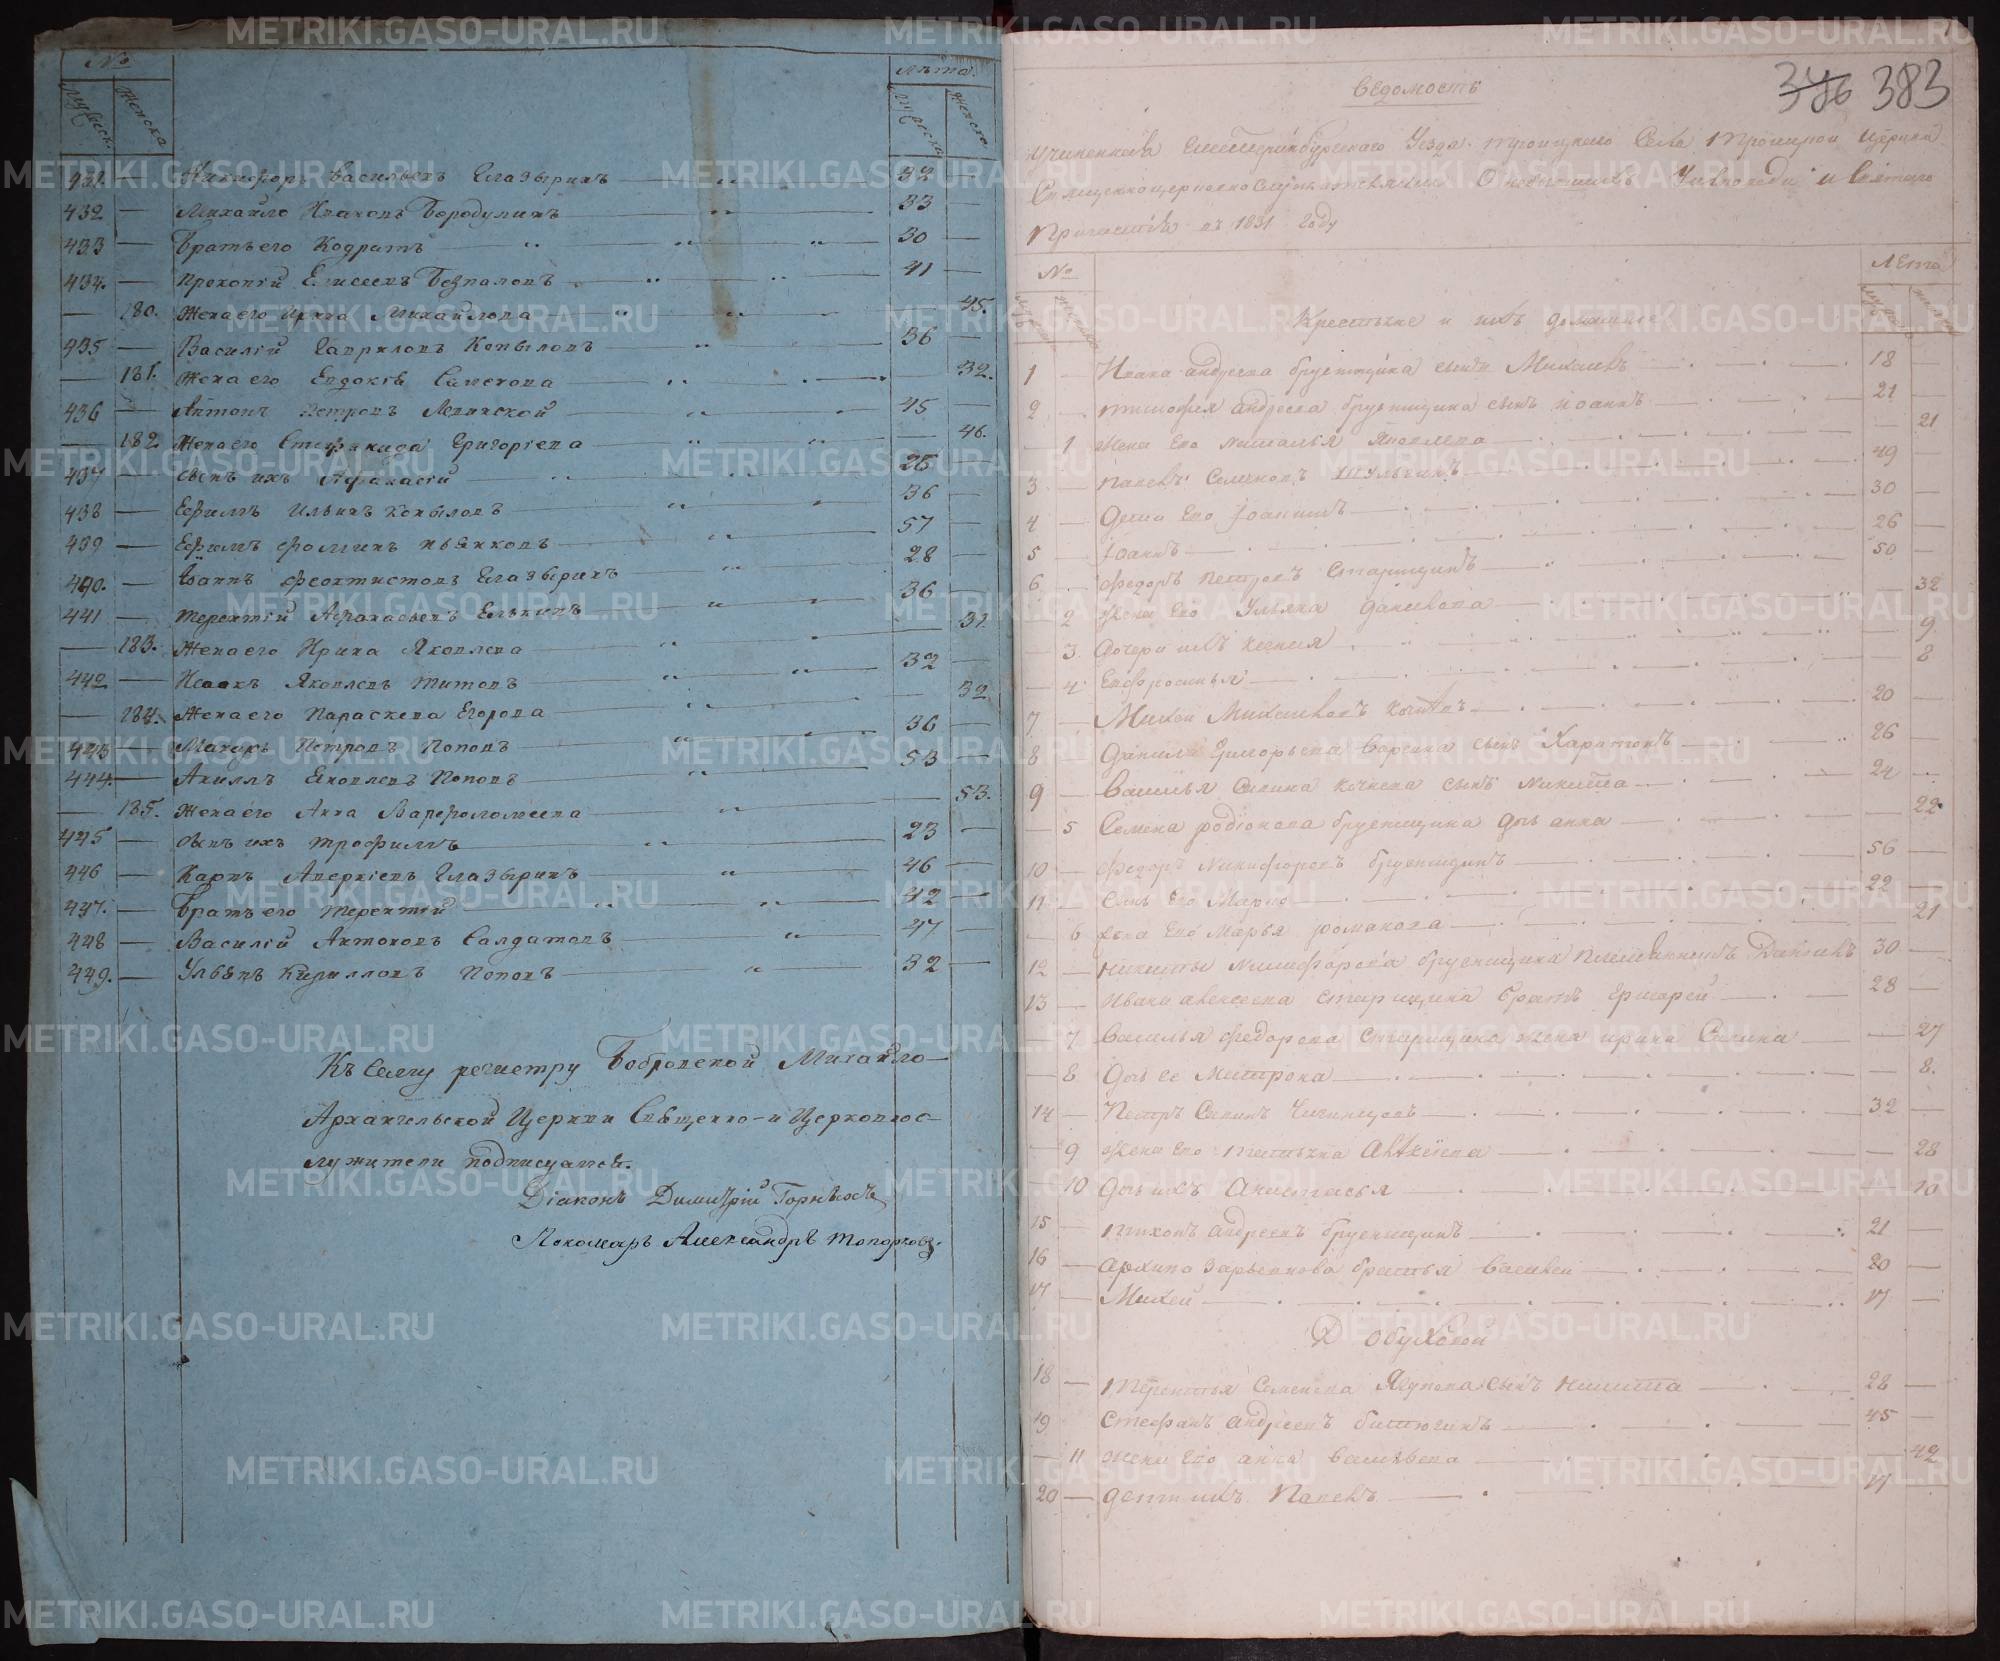 № Лѣта
Мужеск. Женска Мужеска Женска
431. Никифоръ Васильевъ Глазыринъ 32
432 Михайло Ивановъ Бородулинъ 33
433 Братъ его Кодратъ 30
434. Прокопій Елисеевъ Безпаловъ 41
180. Жена его Ирина Михайлова 45.
435 Василій Гавриловъ Копыловъ 36
181. Жена его Евдокія Симеонова 32.
436 Антонъ Петровъ Левинской 45
182 Жена его Стефанида Григоріева 46.
437 Сынъ ихъ Афанасій 25
438 Ефимъ Ильинъ Копыловъ 36
439 Ефимъ Фоминъ Пьянковъ 57
440. Іоаннъ Феоктистовъ Глазыринъ 28
441 Терентій Афанасьевъ Елькинъ 36
183. Жена его Ирина Яковлева 31.
442 Исаакъ Яковлевъ Титовъ 32
184. Жена его Параскева Егорова 32.
443 Петровъ Поповъ 36
444. Акилъ Яковлевъ Поповъ 53
185. Жена его Анна Варфоломеева 53.
445 Сынъ ихъ Трофимъ 23
446 Карпъ Аверкіевъ Глазыринъ 46
447. Братъ его Терентій 42
448 Василій Антоновъ Салдатовъ 47
449. Кирилловъ Поповъ 32
Къ Сему регистру Бобровской Михайло-
Архангельской Церкви Священно-и Церковнос-
лужители подписуамся.
Діаконъ Димитрій
Пономарь Александръ Топорковъ.
376 383
Ведомость
Учиненная Екатеринбургскаго Уезда Троицкаго Села Троицкой Церкви
Священноцерковнослужательми О небывшихъ Уисповеди и Святаго
Причастія въ 1831 году
№ Лета
Крестьяне и ихъ домашние
1 Ивана Андреева Брусницина сынъ Михаилъ 18
2 Тимофея Андреева Брусницина сынъ Іоаннъ 21
1 Жена Его Наталья Яковлева 21
3 Павелъ Семеновъ 49
4 Дети Его Іоаннъ 30
5 Іоаннъ 26
6 Федоръ Петровъ Старицинъ 50
2 Жена Его Ульяна Данилова 32
3 Дочери ихъ Ксения 9
4 Евфросинья 8
7 Михей Михайловъ 20
8 Данила Григорьева сынъ Харитонъ 26
9 Василья Савина Кочнева сынъ Никита 24
5 Семена Родіонова Брусницина дочь Анна 22
10 Федоръ Никифоровъ Брусницинъ 56
11 Сынъ Его Марко 22
6 Жена Его Марья Романова 21
12 Никиты Никифорова Брусницина племянникъ Данилъ 30
13 Ивана Алексеева Старицина братъ Григорей 28
7 Василья Федорова Старицина жена Ирина Савина 27
8 Дочь Ее Матрона 8.
14 Петръ Савинъ 32
9 Жена Его Татьяна 28
10 Дочь ихъ Анастасья 10
15 Тихонъ Андреевъ Брусницинъ 21
16 Архипа братья Василей 20
17 Михей 17
Д Обуховой
18 Терентья Семенова Ягупова сынъ Никита 28
19 Стефанъ Андреевъ Битюгинъ 45
11 Жена Его Анна Васильева 42
20 Дети ихъ Павелъ 17